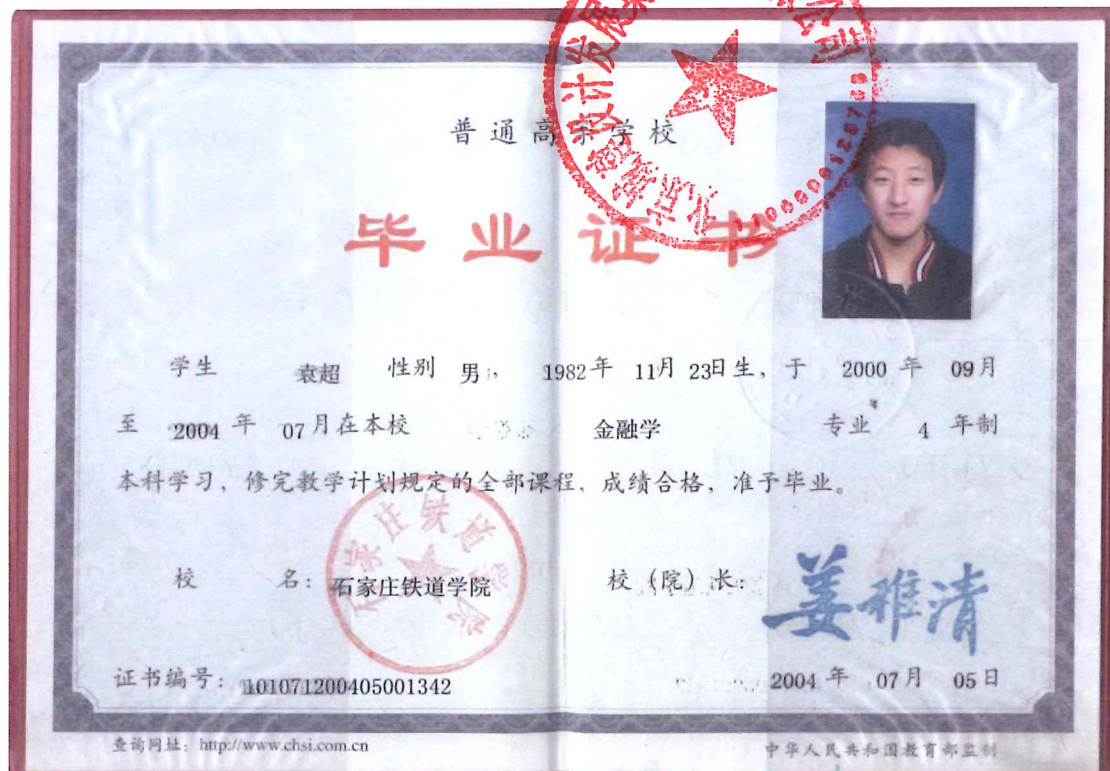 普通高等学校
毕业证书
学生 袁超 性别 男, 1982年 11月 23日生, 于 2000 年 09月
至 2004 年 07月在本校 金融学 专业 4 年制
本科学习, 修完教学计划规定的全部课程, 成绩合格, 准予毕业。
校 名: 石家庄铁道学院 校(院)长: 姜
石家庄铁道学院
证书编号: 101071200405001342 2004 年 07月 05日
查询网址: http://www.chsi.com.cn 中华人民共和国教育部监制